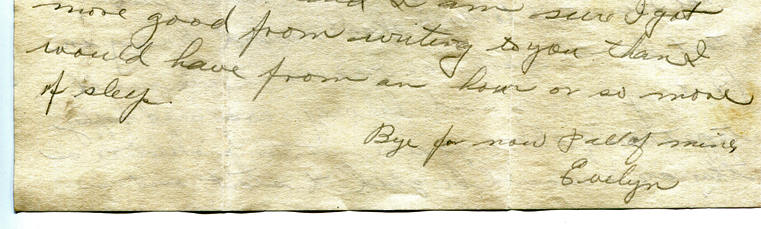 and I am sure I got
more good from writing to you than I
would have from an hour or so more
of sleep.
Bye for now & all of mine,
Evelyn